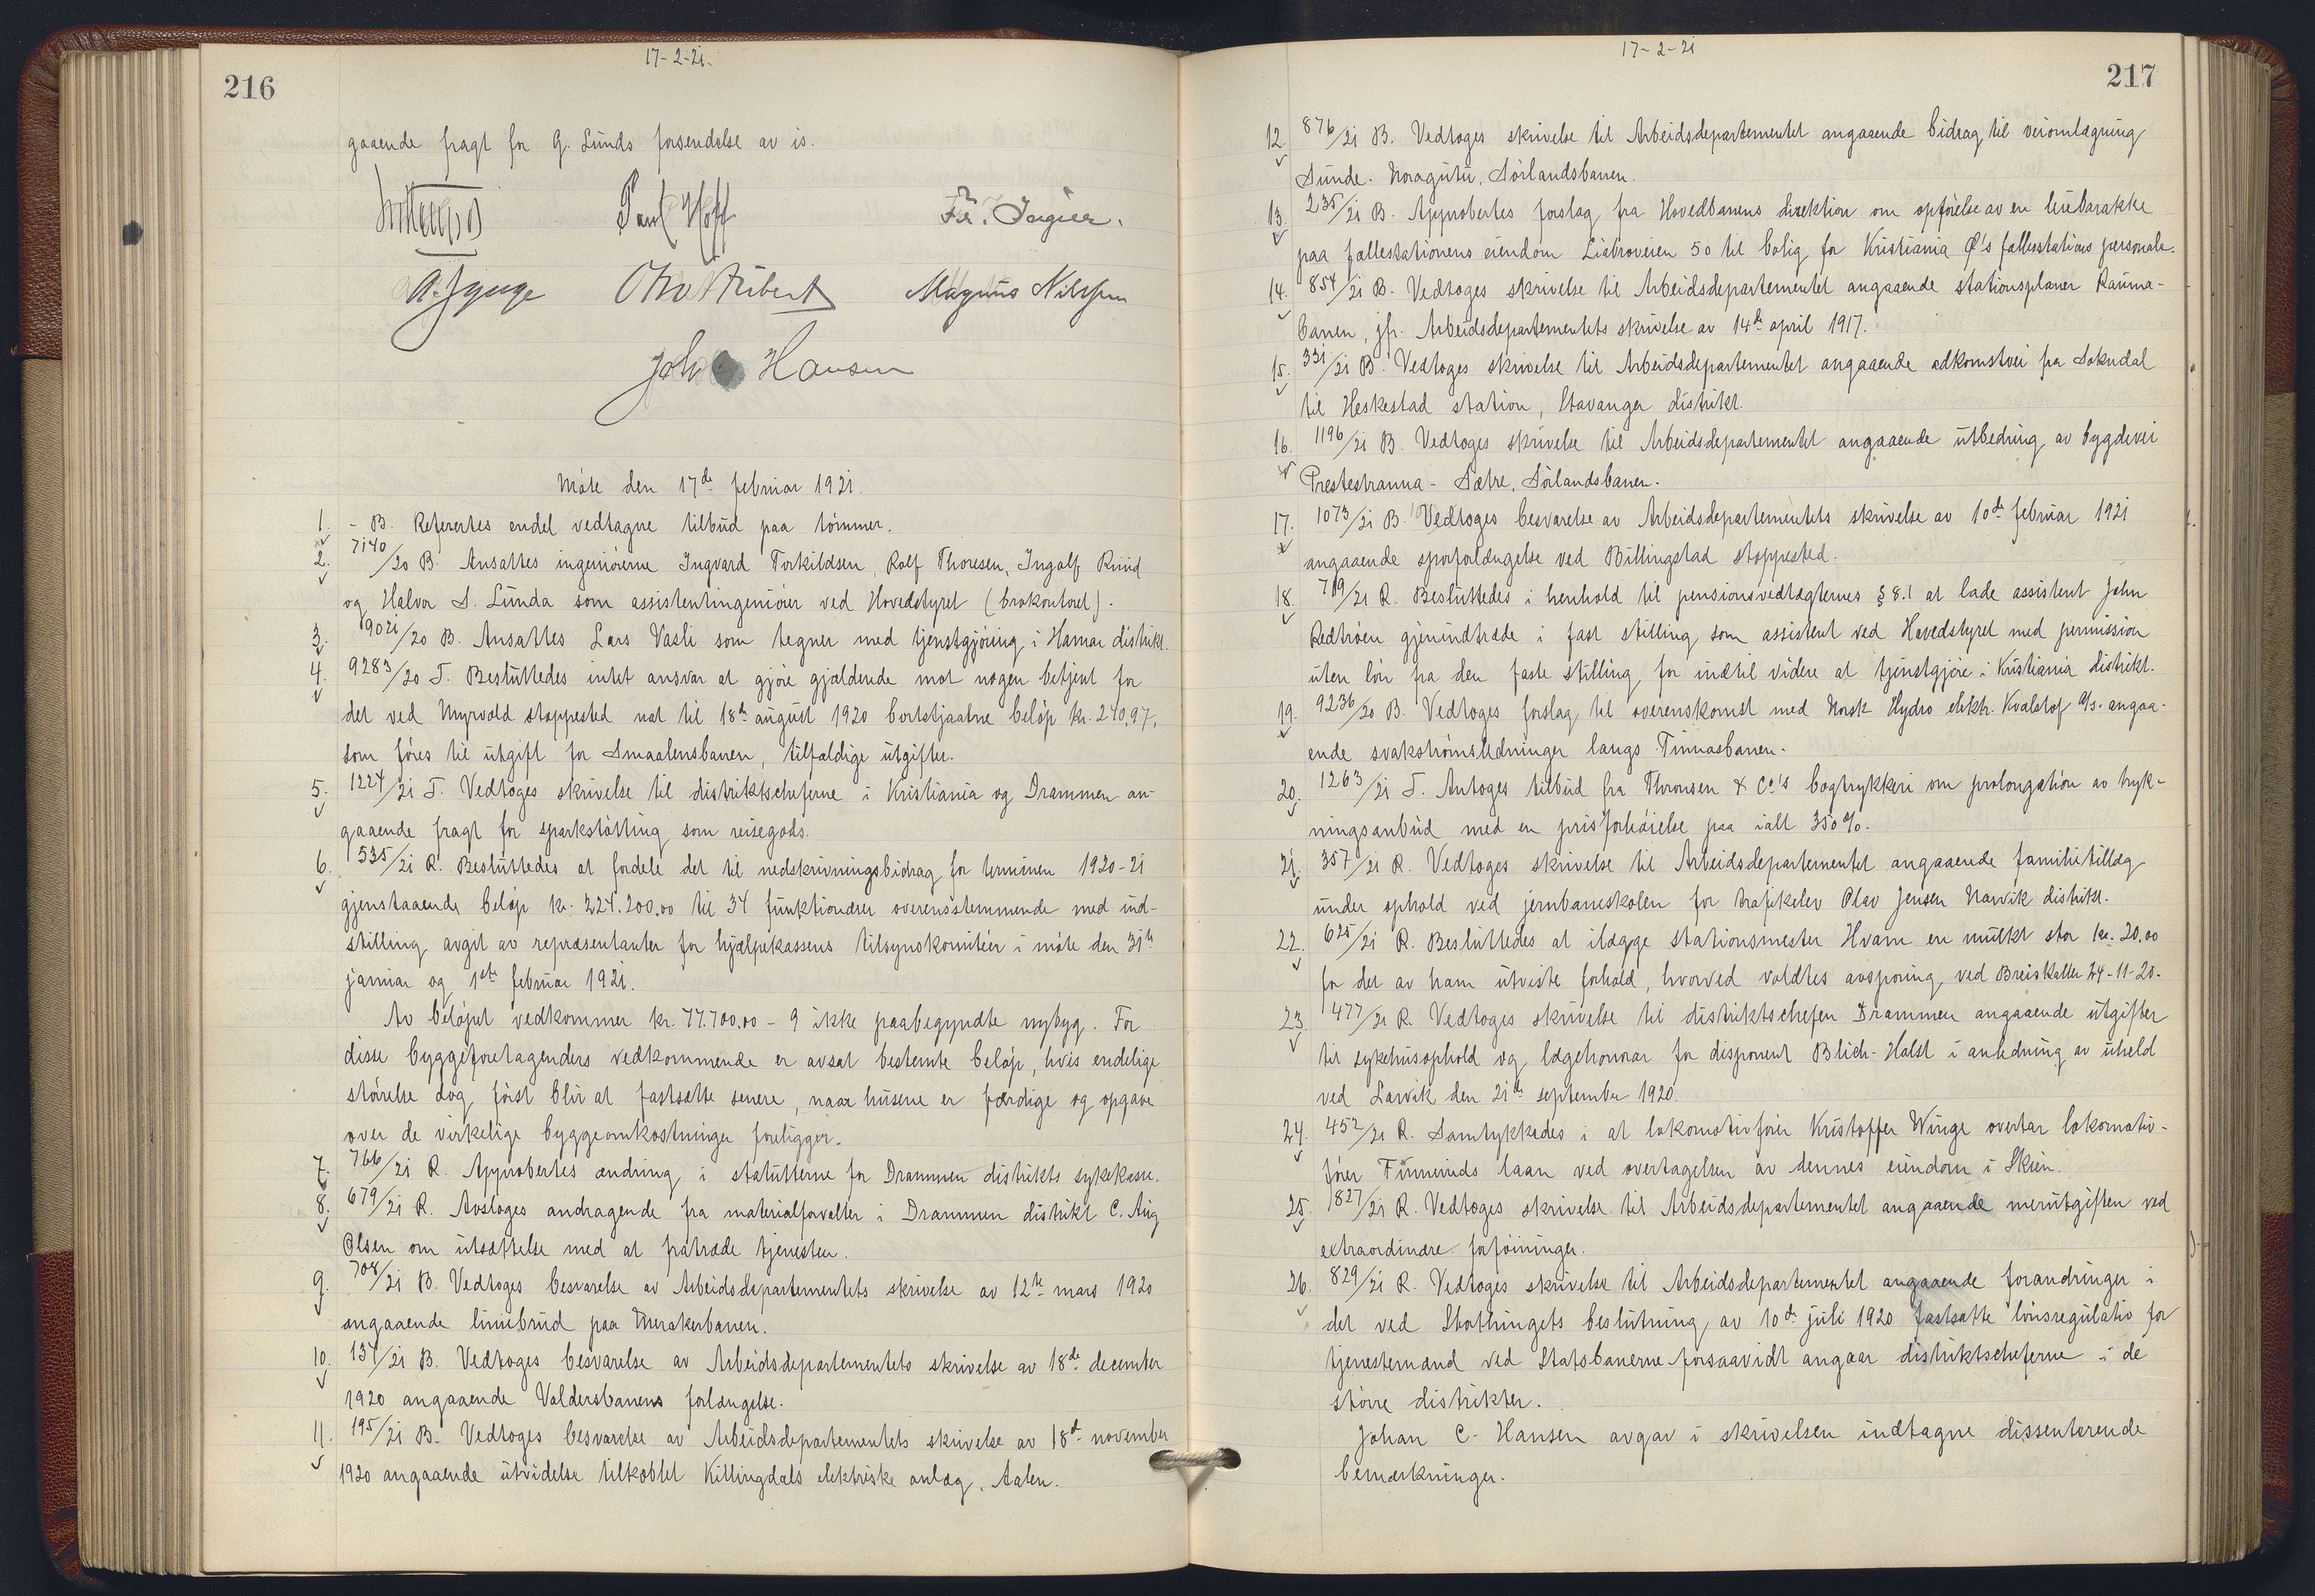 17-2-21.
216
gaaende fragt for G. Lunds forsendelse av is.
Paul Hoff
Fr. Jagier.
Otto Aubert
Magnus Nilssen
Joh Hansen
Møte den 17de februar 1921.
1. - B. Refertes endel vedtagne tilbud paa tømmer.
2. 7140/20 B. Ansattes ingeniørerne Ingvard Torkildsen, Rolf Thoresen, Ingolf Ruud
og Halvor S. Lunda som assistentingeniører ved Hovedstyret (brokontoret).
3. 9021/20 B. Ansattes Lars Vasli som tegner med tjenstgjøring i Hamar distrikt.
4. 9283/20 T. Besluttedes intet ansvar at gjøre gjældende mot nogen betjent for
det ved Myrvold stoppested nat til 18de august 1920 bortstjaalne beløp kr. 240,97,
som føres til utgift for Smaalensbanen, tilfældige utgifter.
5. 1224/21 T. Vedtoges skrivelse til distriktscheferne i Kristiania og Drammen an-
gaaende fragt for sparkstøtting som reisegods.
6. 535/21 R. Besluttedes at fordele det til nedskrivningsbidrag for terminen 1920-21
gjenstaaende beløp kr. 224.200,00 til 34 funktionærer overensstemmende med ind-
stilling avgit av repræsentanter for hjælpekassens tilsynskomitéer i møte den 31te
januar og 1ste februar 1921.
Av beløpet vedkommer kr. 77.700,00 - 9 ikke paabegyndte nybyg. For
disse byggeforetagenders vedkommende er avsat bestemte beløp, hvis endelige
størrelse dog først blir at fastsætte senere, naar husene er færdige og opgave
over de virkelige byggeomkostninger foreligger.
7. 766/21 R. Approbertes ændring i statutterne for Drammen distrikts sykekasse.
8. 679/21 R. Avsloges andragende fra materialforvalter i Drammen distrikt C. Aug
Olsen om utsættelse med at fratræde tjenesten.
9. 708/21 B. Vedtoges besvarelse av Arbeidsdepartementets skrivelse av 12te mars 1920
angaaende liniebrud paa Merakerbanen.
10. 137/21 B. Vedtoges besvarelse av Arbeidsdepartementets skrivelse av 18de december
1920 angaaende Valdersbanens forlængelse.
11. 195/21 B. Vedtoges besvarelse av Arbeidsdepartementets skrivelse av 18de november
1920 angaaende utvidelse tilkoblet Killingdals elektriske anlæg, Aalen.
17-2-21
217
12. 876/21 B. Vedtoges skrivelse til Arbeidsdepartementet angaaende bidrag til veiomlægning
Sunde - Noragutu, Sørlandsbanen.
13. 235/21 B. Approbertes forslag fra Hovedbanens direktion om opførelse av en leiebarakke
paa fællesstationens eiendom Liabroveien 50 til bolig for Kristiania Ø's fællesstations personale.
14. 854/21 B. Vedtoges skrivelse til Arbeidsdepartementet angaaende stationsplaner Rauma-
banen, jfr. Arbeidsdepartementets skrivelse av 14de april 1917.
15. 331/21 B. Vedtoges skrivelse til Arbeidsdepartementet angaaende adkomstvei fra Sokndal
til Heskestad station, Stavanger distrikt.
16. 1196/21 B. Vedtoges skrivelse til Arbeidsdepartementet angaaende utbedring av bygdevei
Prestestranna - Sætre, Sørlandsbanen.
17. 1073/21 B. Vedtoges besvarelse av Arbeidsdepartementets skrivelse av 10de februar 1921
angaaende sporforlængelse ved Billingstad stoppested.
18. 719/21 R. Besluttedes i henhold til pensionsvedtægternes § 8.1 at lade assistent John
Redtrøen gjenindtræde i fast stilling som assistent ved Hovedstyret med permission
uten løn fra den faste stilling for indtil videre at tjenstgjøre i Kristiania distrikt.
19. 9236/20 B. Vedtoges forslag til overenskomst med Norsk Hydro elektr. Kvælstof A/S. angaa-
ende svakstrømsledninger langs Tinnosbanen.
20. 1263/21 T. Antoges tilbud fra Thronsen & Co's bogtrykkeri om prolongation av tryk-
ningsanbud med en prisforhøielse paa ialt 350%.
21. 357/21 R. Vedtoges skrivelse til Arbeidsdepartementet angaaende familietillæg
under ophold ved jernbaneskolen for trafikelev Olav Jensen Narvik distrikt.
22. 625/21 R. Besluttedes at ilægge stationsmester Hvam en mulkt stor kr. 20,00
for det av ham utviste forhold, hvorved voldtes avsporing ved Breiskallen 24-11-20.
23. 477/21 R. Vedtoges skrivelse til distriktschefen Drammen angaaende utgifter
til sykehusophold og lægehonorar for disponent Blich-Holst i anledning av uheld
ved Larvik den 21de september 1920.
24. 452/21 R. Samtykkedes i at lokomotivfører Kristoffer Winge overtar lokomotiv-
fører Finneruds laan ved overtagelsen av dennes eiendom i Skien.
25. 827/21 R. Vedtoges skrivelse til Arbeidsdepartementet angaaende merutgiften ved
extraordinære forføininger.
26. 829/21 R. Vedtoges skrivelse til Arbeidsdepartementet angaaende forandringer i
det ved Stortingets beslutning av 10de juli 1920 fastsatte lønsregulativ for
tjenestemænd ved Statsbanerne forsaavidt angaar distriktscheferne i de
større distrikter.
Johan C. Hansen avgav i skrivelsen indtagne dissenterende
bemærkninger.